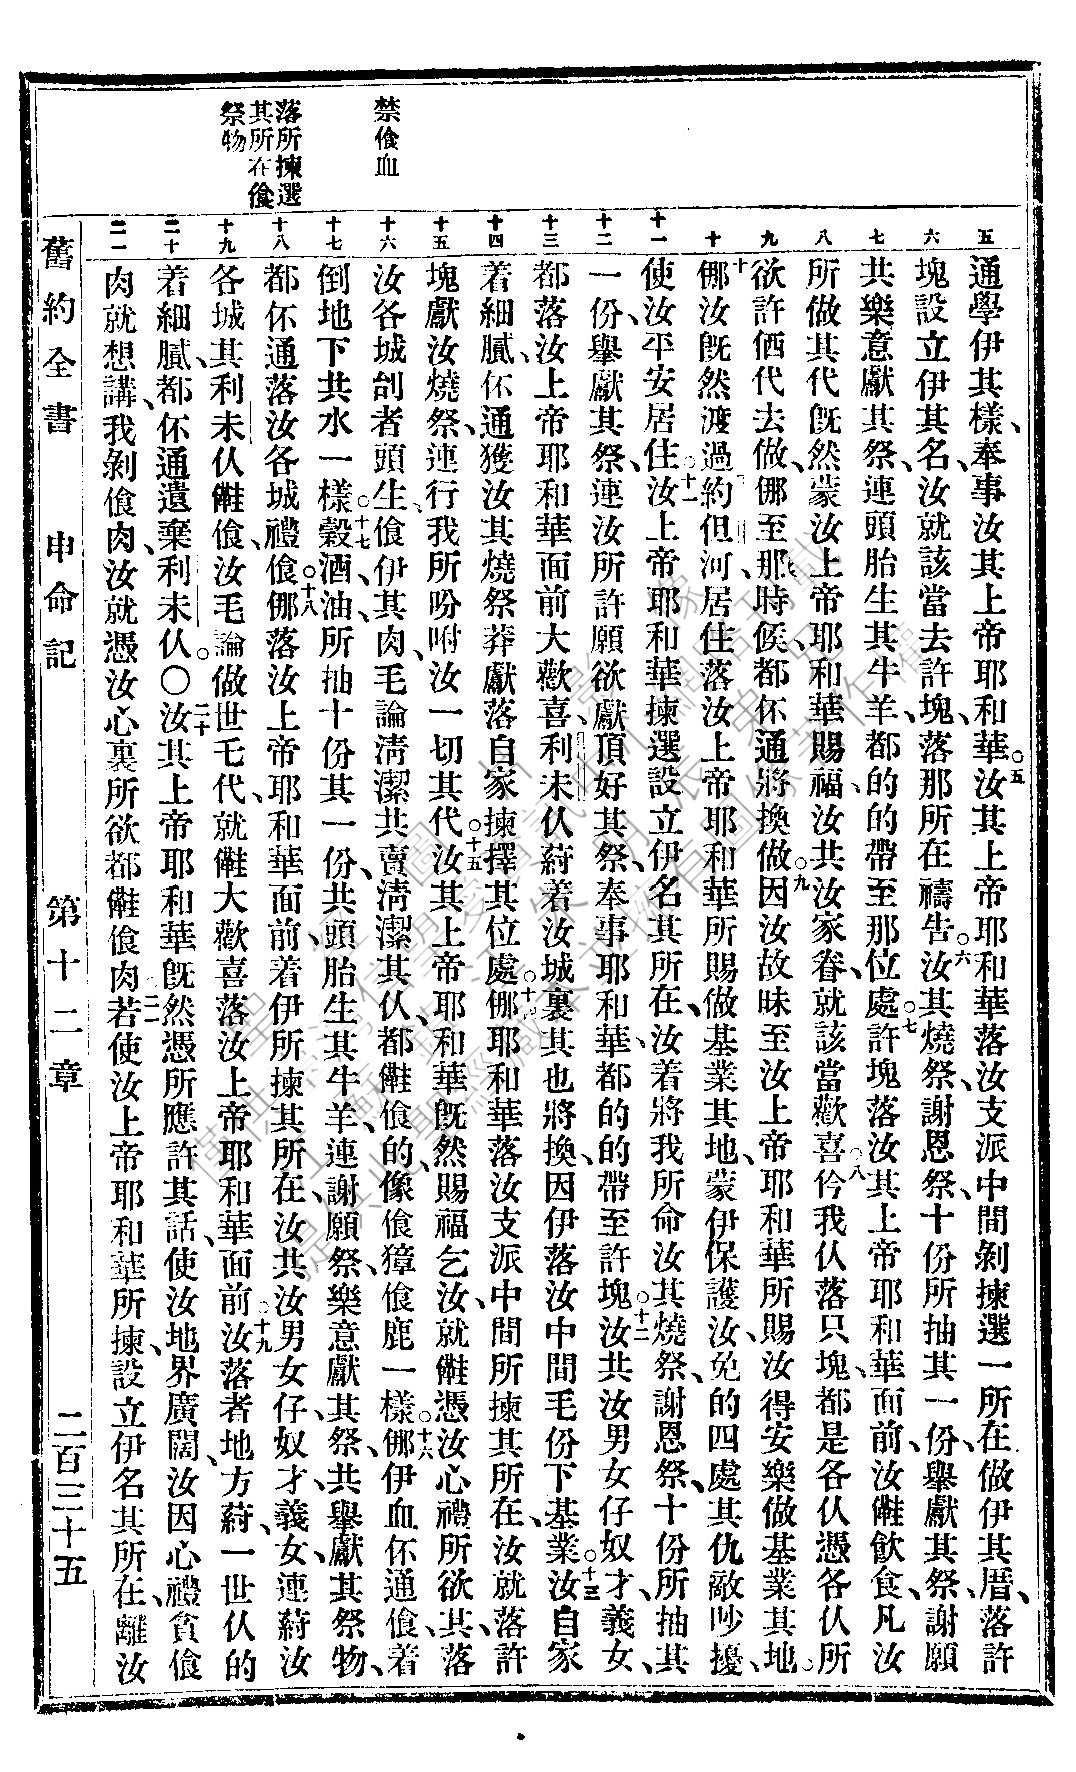 禁食血
落所揀選
其所在食
祭物
五 六 七 八 九 十 十一 十二 十三 十四 十五 十六 十七 十八 十九 二十 二一
通學伊其樣、奉事汝其上帝耶和華。五汝其上帝耶和華落汝支派中間剝揀選一所在做伊其厝、落許
塊設立伊其名、汝就該當去許塊、落那所在禱告。六汝其燒祭、謝恩祭、十份所抽其一份、舉獻其祭、謝願
共樂意獻其祭、連頭胎生其牛羊、都的的帶至那位處。七許塊落汝其上帝耶和華面前、汝𠆧飲食、凡汝
所做其代、既然蒙汝上帝耶和華賜福、汝共汝家眷、就該當歡喜。八仱我仈落只塊、都是各仈憑各仈所
欲許𠲥代去做、㑚至那時候、都伓通將換做。九因汝故昧至汝上帝耶和華所賜汝得安樂做基業其地。
十㑚汝既然渡過約但河、居住落汝上帝耶和華所賜做基業其地、蒙伊保護汝免的四處其仇敵吵擾、
使汝平安居住。十一汝上帝耶和華揀選設立伊名其所在、汝着將我所命汝其燒祭、謝恩祭、十份所抽其
一份、舉獻其祭、連汝所許願欲獻頂好其祭、奉事耶和華、都的的帶至許塊。十二汝共汝男女仔、奴才、義女、
都落汝上帝耶和華面前大歡喜、利未仈𦵑着汝城裏其也將換、因伊落汝中間毛份下基業。十三汝自家
着細膩、伓通獲汝其燒祭莽獻落自家揀擇其位處。十四㑚耶和華落汝支派中間所揀其所在、汝就落許
塊獻汝燒祭、連行我所吩咐汝一切其代。十五汝其上帝耶和華既然賜福乞汝、就𠆧憑汝心禮所欲其、落
汝各城刣者頭生、食伊其肉、毛論淸潔共賣淸潔其仈、都𠆧食的、像食獐食鹿一樣。十六㑚伊血伓通食、着
倒地下共水一樣。十七穀、酒、油、所抽十份其一份、共頭胎生其牛羊、連謝願祭、樂意獻其祭、共舉獻其祭物、
都伓通落汝各城禮食。十八㑚落汝上帝耶和華面前、着伊所揀其所在、汝共汝男女仔、奴才、義女、連𦵑汝
各城其利未仈𠆧食、汝毛論做世乇代、就𠆧大歡喜落汝上帝耶和華面前。十九汝落者地方𦵑一世仈的
着細膩、都伓通遺棄利未仈。〇二十汝其上帝耶和華既然憑所應許其話、使汝地界廣闊、汝因心禮貪食
肉就想講、我剝食肉、汝就憑汝心裏所欲都𠆧食肉。二一若使汝上帝耶和華所揀、設立伊名其所在、離汝
舊約全書 申命記 第十二章 二百三十五